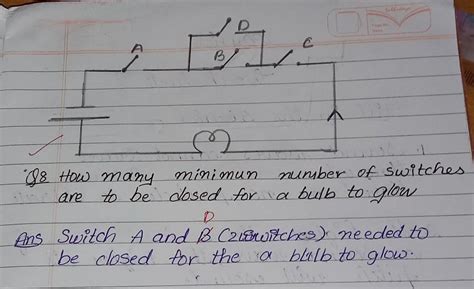 D
A
B
C
Q8 How many minimun number of switches
are to be closed for a bulb to glow
D
Ans Switch A and B (2 switches) needed to
be closed for the a bulb to glow.